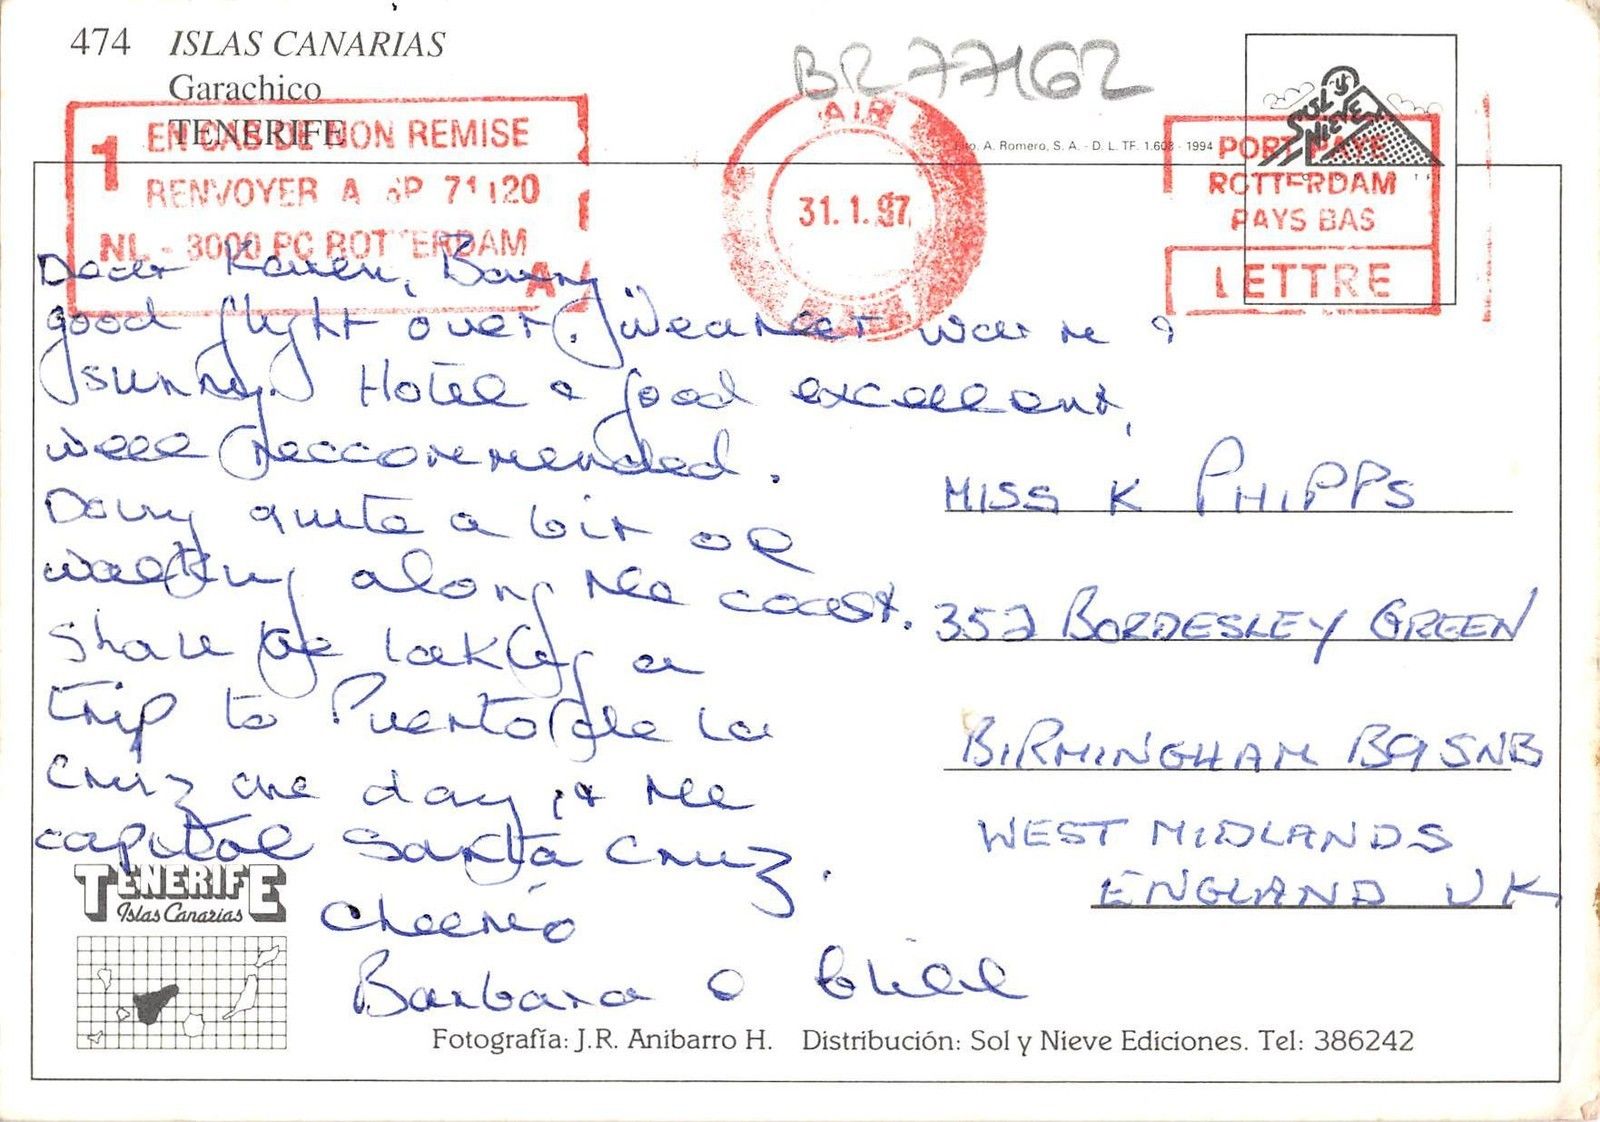 474 ISLAS CANARIAS
Garachico
TENERIFE
BR 77162
1 EN CAS DE NON REMISE
RENVOYER A SP 71120
NL - 3000 PC ROTTERDAM
A
AIR
31.1.97
SOL Y NIEVE
A. Romero, S. A. - D. L. TF. 1.608 - 1994
PORT PAYE
ROTTERDAM
PAYS BAS
LETTRE
Dear Karen, Barry,
good flight over. Weather warm &
sunny. Hotel & food excellent,
well reccommended.
Doing quite a bit of
walking along the coast.
Shall be taking a
trip to Puerto de la
Cruz one day & the
capital Santa Cruz.
Cheerio
Barbara & Bill
MISS K PHIPPS
352 BORDESLEY GREEN
BIRMINGHAM B9 5NB
WEST MIDLANDS
ENGLAND UK
TENERIFE
Islas Canarias
Fotografía: J.R. Anibarro H. Distribución: Sol y Nieve Ediciones. Tel: 386242